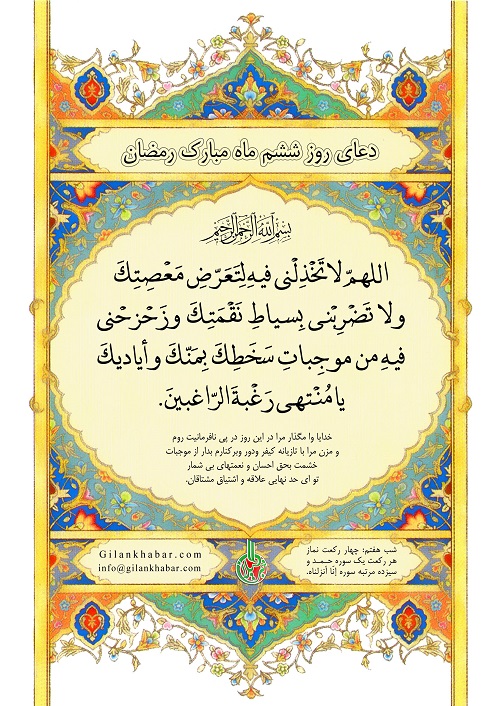 دعای روز ششم ماه مبارک رمضان
بسم الله الرحمن الرحیم
اللهمّ لا تَخْذِلْنی فیهِ لِتَعَرّضِ مَعْصِتِكَ
ولا تَضْرِبْنی بِسیاطِ نَقْمَتِكَ وزَحْزحْنی
فیهِ من موجِباتِ سَخَطِكَ بِمَنّكَ وأیادیكَ
یا مُنْتهى رَغْبةَ الرّاغبینَ.
خدایا وا مگذار مرا در این روز در پی نافرمانیت روم
و مزن مرا با تازیانه کیفر ودور وبرکنارم بدار از موجبات
خشمت بحق احسان و نعمتهای بی شمار
تو ای حد نهایی علاقه و اشتیاق مشتاقان.
شب هفتم؛ چهار رکعت نماز
هر رکعت یک سوره حـمـد و
سیزده مرتبه سوره إنّا أنزلناه.
Gilankhabar.com
info@gilankhabar.com